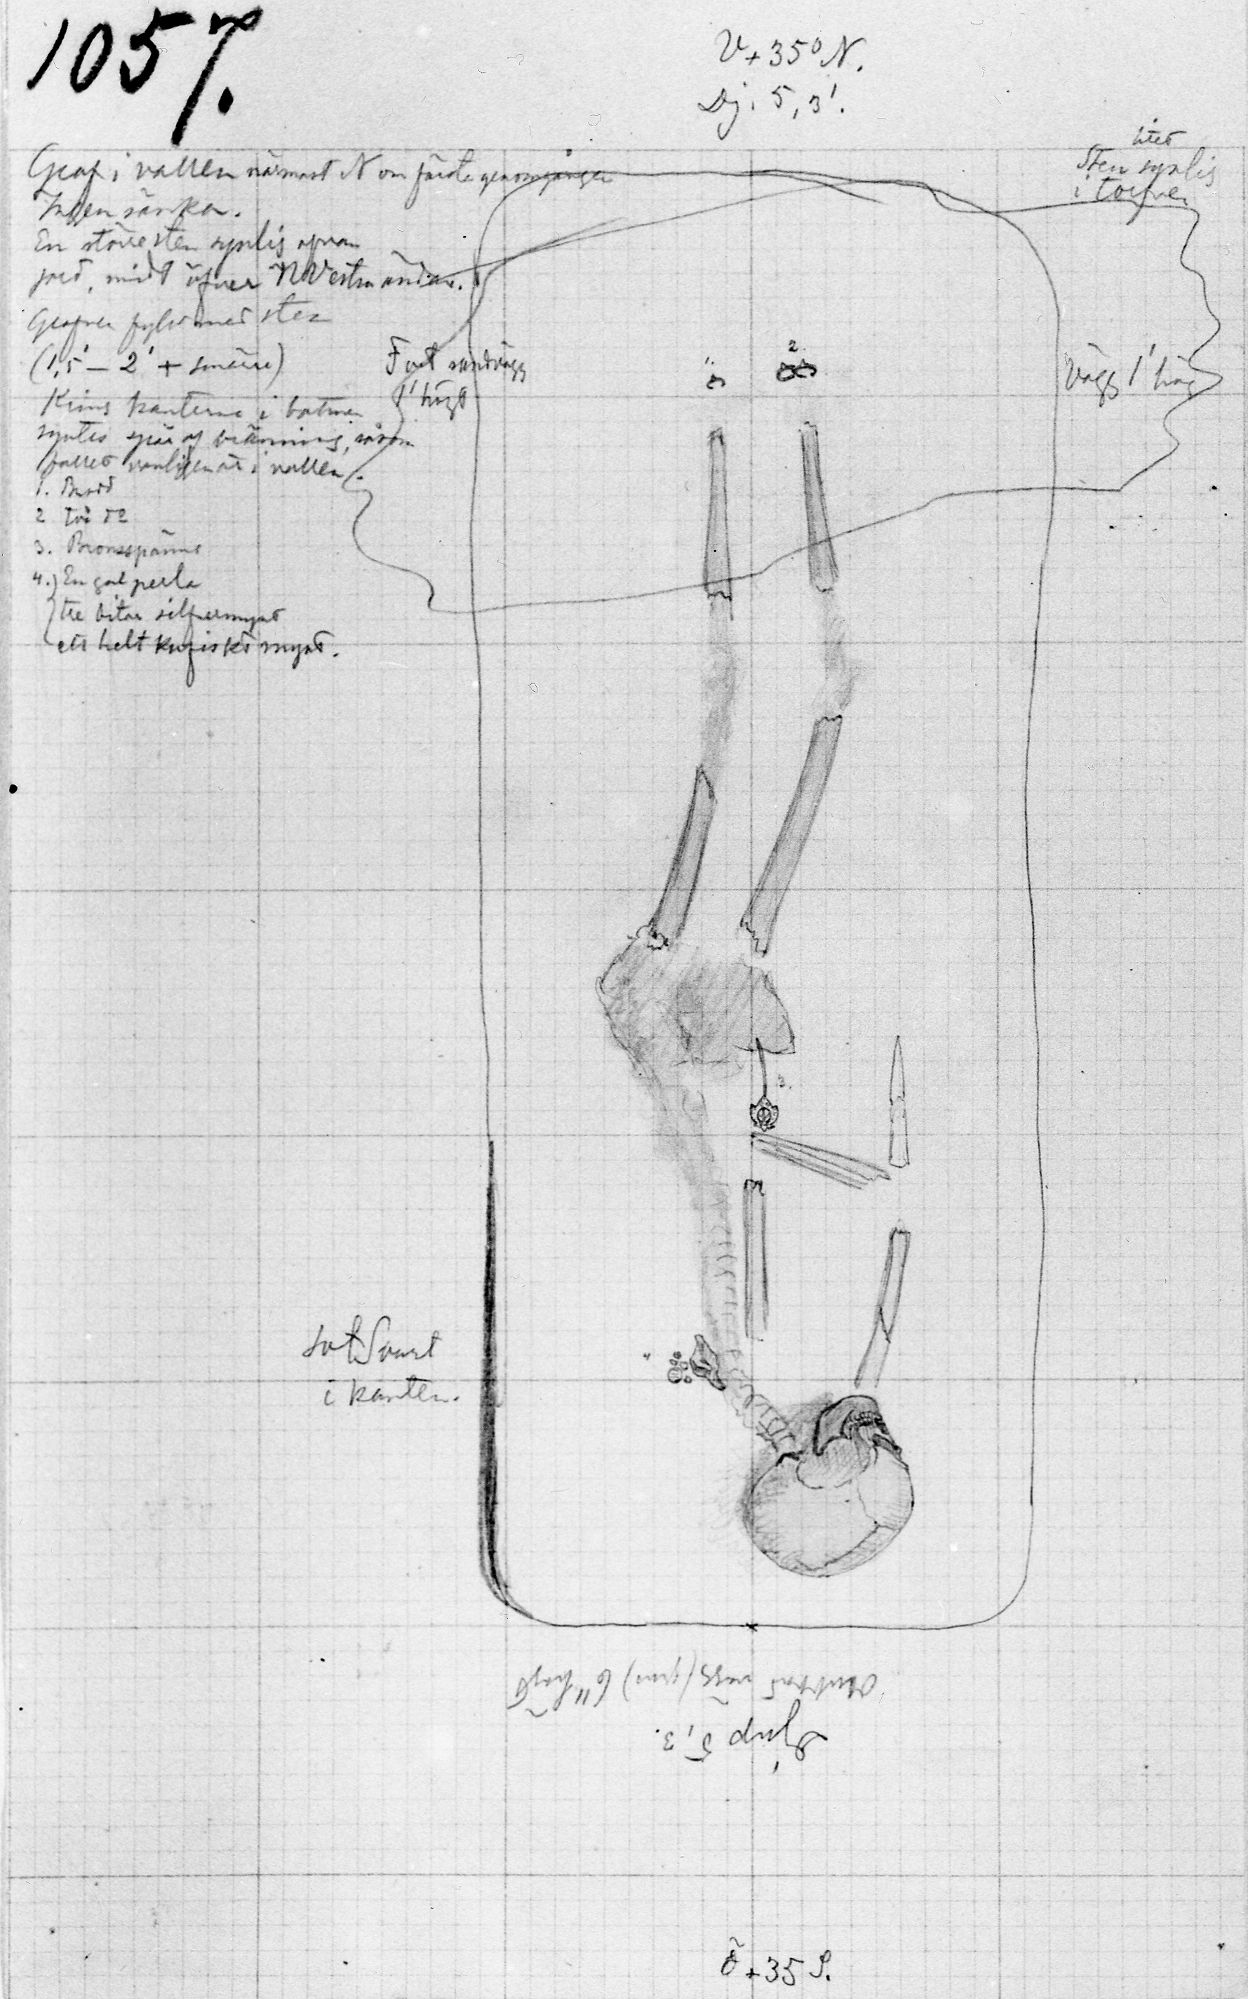 1057.
V+35° N.
Dj. 5,3'.
Graf i vallen närmast N om fjärde genomgången
Ingen sänka.
En större sten synlig ofvan
jord, midt öfver NVestra ändan.
Grafven fyld med sten
(1,5' – 2' + smärre)
Kring kanterna i botten
syntes spår af bränning, såsom
fallet vanligen är i vallen.
1. Brodd
2 två d:o
3. Bronsspänne
4. En gul perla
tre bitar silfvermynt
ett helt kufiskt mynt.
liten
Sten synlig
i torfven
Fast sandvägg
1' högt
Vägg 1' hög
1
2
3.
4
sotSvart
i kanten.
vägg (grus) 6" högt
Djup 5,3.
Ö+35 S.